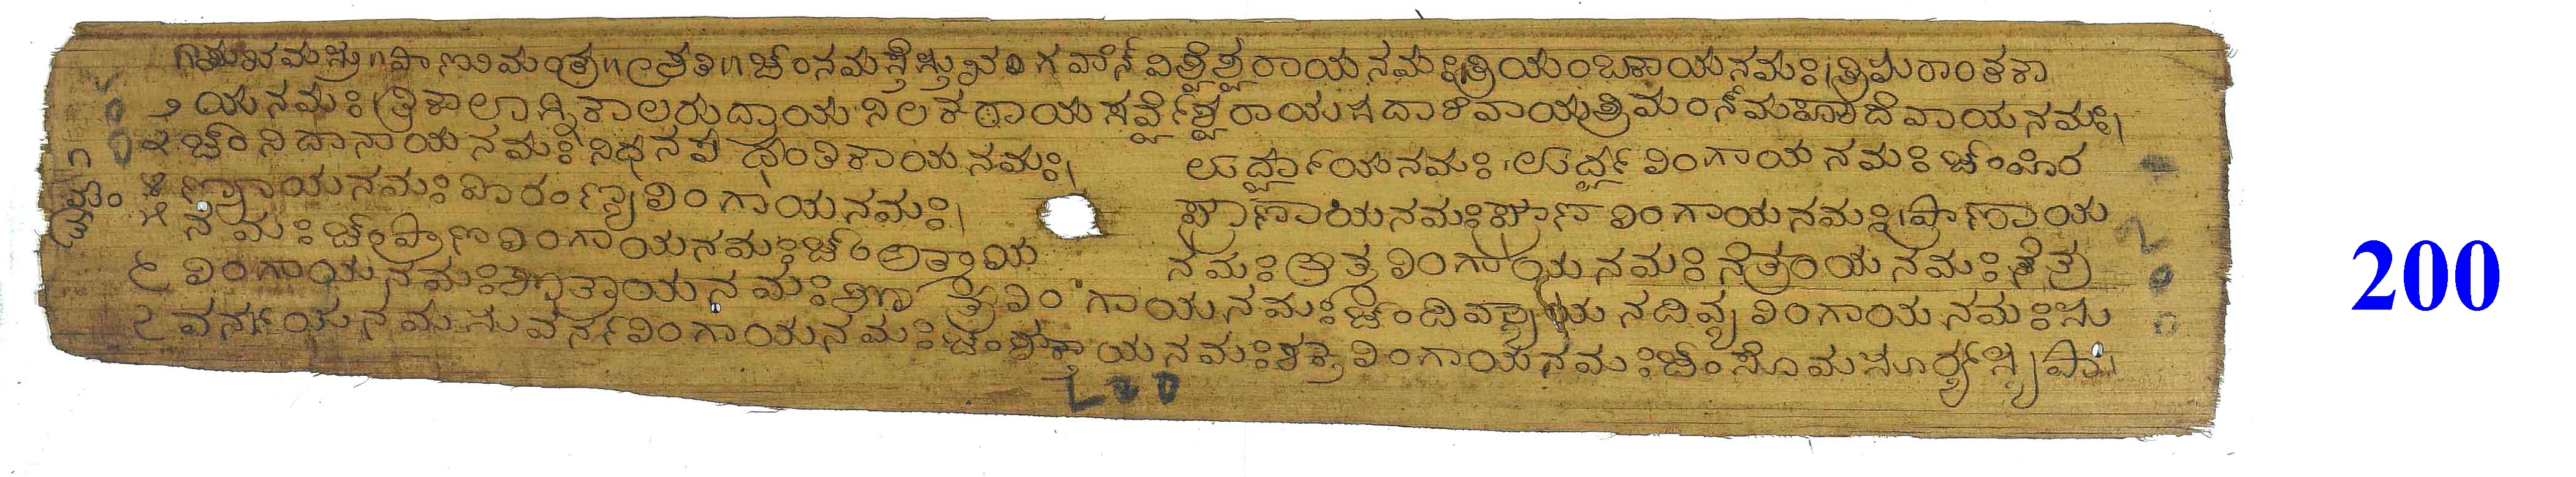 ಗಾಯನಮಸ್ತು॥ಪಾಣಿಮಂತ್ರ॥ಅತ್ರತಿ॥ಓಂನಮಸ್ತೆಸ್ತುಭಗವಾನ್ ವಿಶ್ವೆಶ್ವರಾಯನಮಃತ್ರಿಯಂಬಕಾಯನಮಃ।ತ್ರಿಪುರಾಂತಕಾ
೨ ಯನಮಃ।ತ್ರಿಕಾಲಾಗ್ನಿಕಾಲರುದ್ರಾಯ ನಿಲಕಠಾಯ ಸರ್ವ್ವೆಶ್ವರಾಯಸದಾಶಿವಾಯಶ್ರಿಮಂನ್ಮಹಾದೆವಾಯನಮಃ।
೩ ಓಂನಿದಾನಾಯನಮಃನಿಧನಪ ಧಂತಿಕಾಯನಮಃ। ಊರ್ಧ್ವಾಯನಮಃಊರ್ಧ್ವಲಿಂಗಾಯನಮಃಓಂಹಿರ
೪ ಣ್ಯಾಯನಮಃಹಿರಂಣ್ಯಲಿಂಗಾಯನಮಃ। ಪ್ರಾಣಾಯನಮಃಪ್ರಾಣಲಿಂಗಾಯನಮಃ।ಪ್ರಾಣಾಯ
೫ ನಮಃಓಂಪ್ರಾಣಲಿಂಗಾಯನಮಃಓಂಅತ್ಮಾಯ ನಮಃಆತ್ಮಲಿಂಗಾಯನಮಃನೆತ್ರಾಯನಮಃನೆತ್ರ
೬ ಲಿಂಗಾಯನಮಃಶ್ರೋತ್ರಾಯನಮಃಶ್ರೋತ್ರಲಿಂಗಾಯನಮಃಓಂದಿವ್ಯಾಯನದಿವ್ಯಲಿಂಗಾಯನಮಃಸು
೭ ವರ್ನಾಯನಮಸುವರ್ನಲಿಂಗಾಯನಮಃಓಂಶಕ್ತಾಯನಮಃಶಕ್ತಿಲಿಂಗಾಯನಮಃಓಂಸೊಮಸೂರ್ಯ್ಯಸ್ಯಪಾ।
200
200